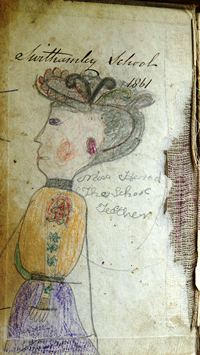 Swithamley School
1861
Miss Heurd
The School
Teather